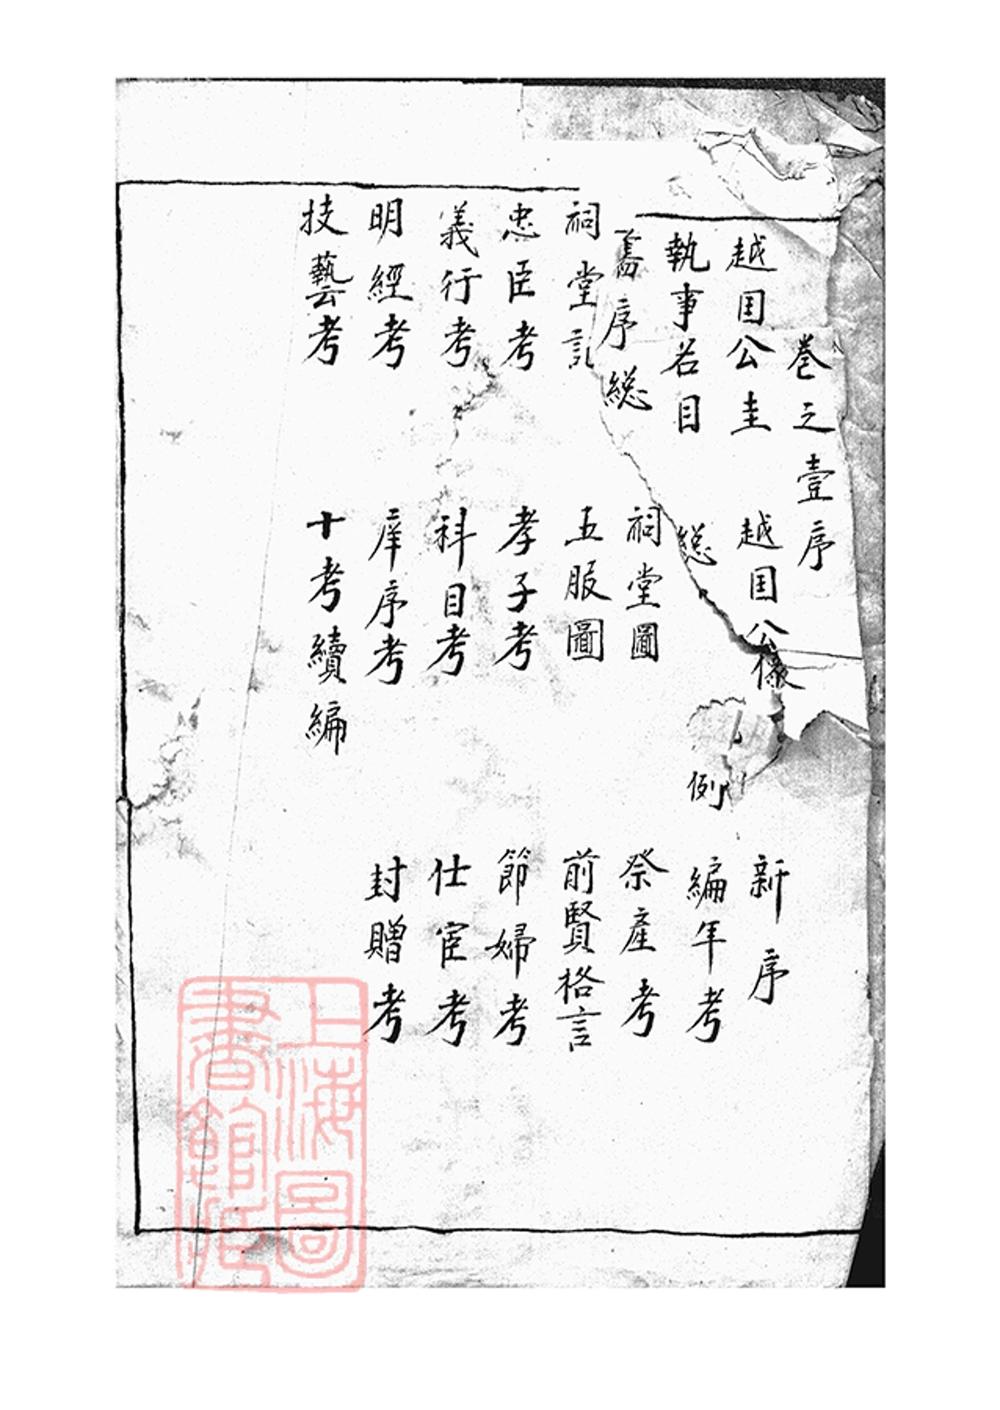 卷之壹序
越国公圭 越国公像 新序
執事名目 総 例 編年考
舊序総 祠堂圖 祭產考
祠堂記 五服圖 前賢格言
忠臣考 孝子考 節婦考
義行考 科目考 仕宦考
明經考 庠序考 封贈考
技藝考 十考續編
上海圖
書館藏